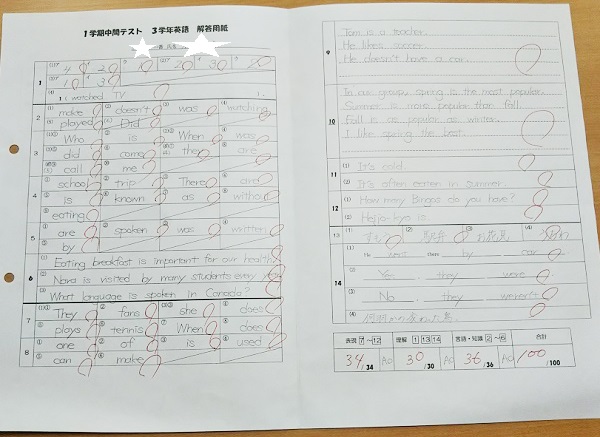 1学期中間テスト 3学年英語 解答用紙
1
4 2 1 2 3 2
1 3
I watched TV
2
make doesn't was watching
played Did
3
Who is When was
did come the are
call me
4
school trip There and
is known as without
eating
5
are spoken was written
by
6
(1) Eating breakfast is important for our health
(2) Nara is visited by many students every
(3) What language is spoken in Canada?
7
They fans she does
plays tennis When does
8
one of is used
can make
9
Tom is a teacher.
He likes soccer.
He doesn't have a car.
10
In our group, spring is the most popular.
Summer is more popular than fall.
Fall is as popular as winter.
I like spring the best.
11
(1) It's cold.
(2) It's often eaten in summer.
12
(1) How many Bingos do you have?
(2) Heijo-kyo is.
13
(1) すもう (2) (3) お花見 (4)
14
(1) He went there by car
(2) Yes, they were
(3) No, they weren't
(4)
表現 7~12 理解 1 13 14 言語・知識 2~6 合計
34/34 A○ 30/30 A○ 36/36 A○ 100/100